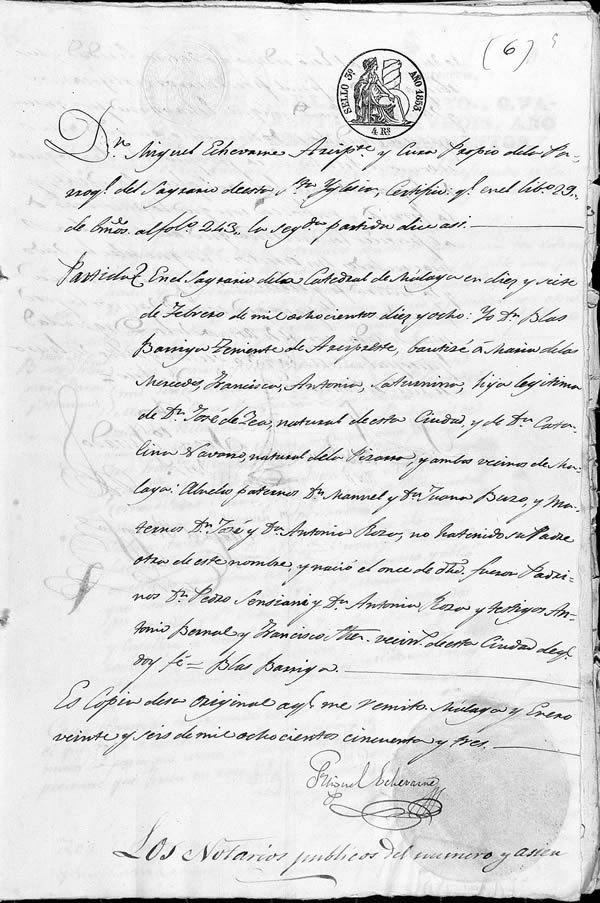 (6)
SELLO 3º AÑO 1853.
4 Rs
Dn. Miguel Echevarne Arcipte y Cura Propio de la Par-
roql. del Sagrario de esta Sta Yglesia, Certifico: ql. en el libo 29,
de bmos. al folo. 243, la segda partida dice asi.
Partida En el Sagrario dela Catedral de Málaga en diez y siete
de Febrero de mil ochocientos diez y ocho: Yo Dn Blas
Barriga Teniente de Arcipreste, bautizé á Maria delas
Mercedes, Francisca, Antonia, Saturnina, hija legitima
de Dn. José de Zea, natural de esta Ciudad, y de Da. Cata-
lina Navarro, natural dela Pizarra, y ambos vecinos de Má-
laga: Abuelos paternos Dn. Manuel y Da. Juana Buzo, y Ma-
ternos Dn. José y Da. Antonia Rozo; no ha tenido su Padre
otra de este nombre, y nació el once de dho, fueron Padri-
nos Dn. Pedro y Da. Antonia Rozo y testigos An-
tonio Bernal y Francisco vecins. de esta Ciudad de ql.
doy fé = Blas Barriga.
Es Copia de su original aql. me remito. Malaga y Enero
veinte y seis de mil ochocientos cincuenta y tres.
Miguel Echevarne
Los Notarios publicos del numero y asien